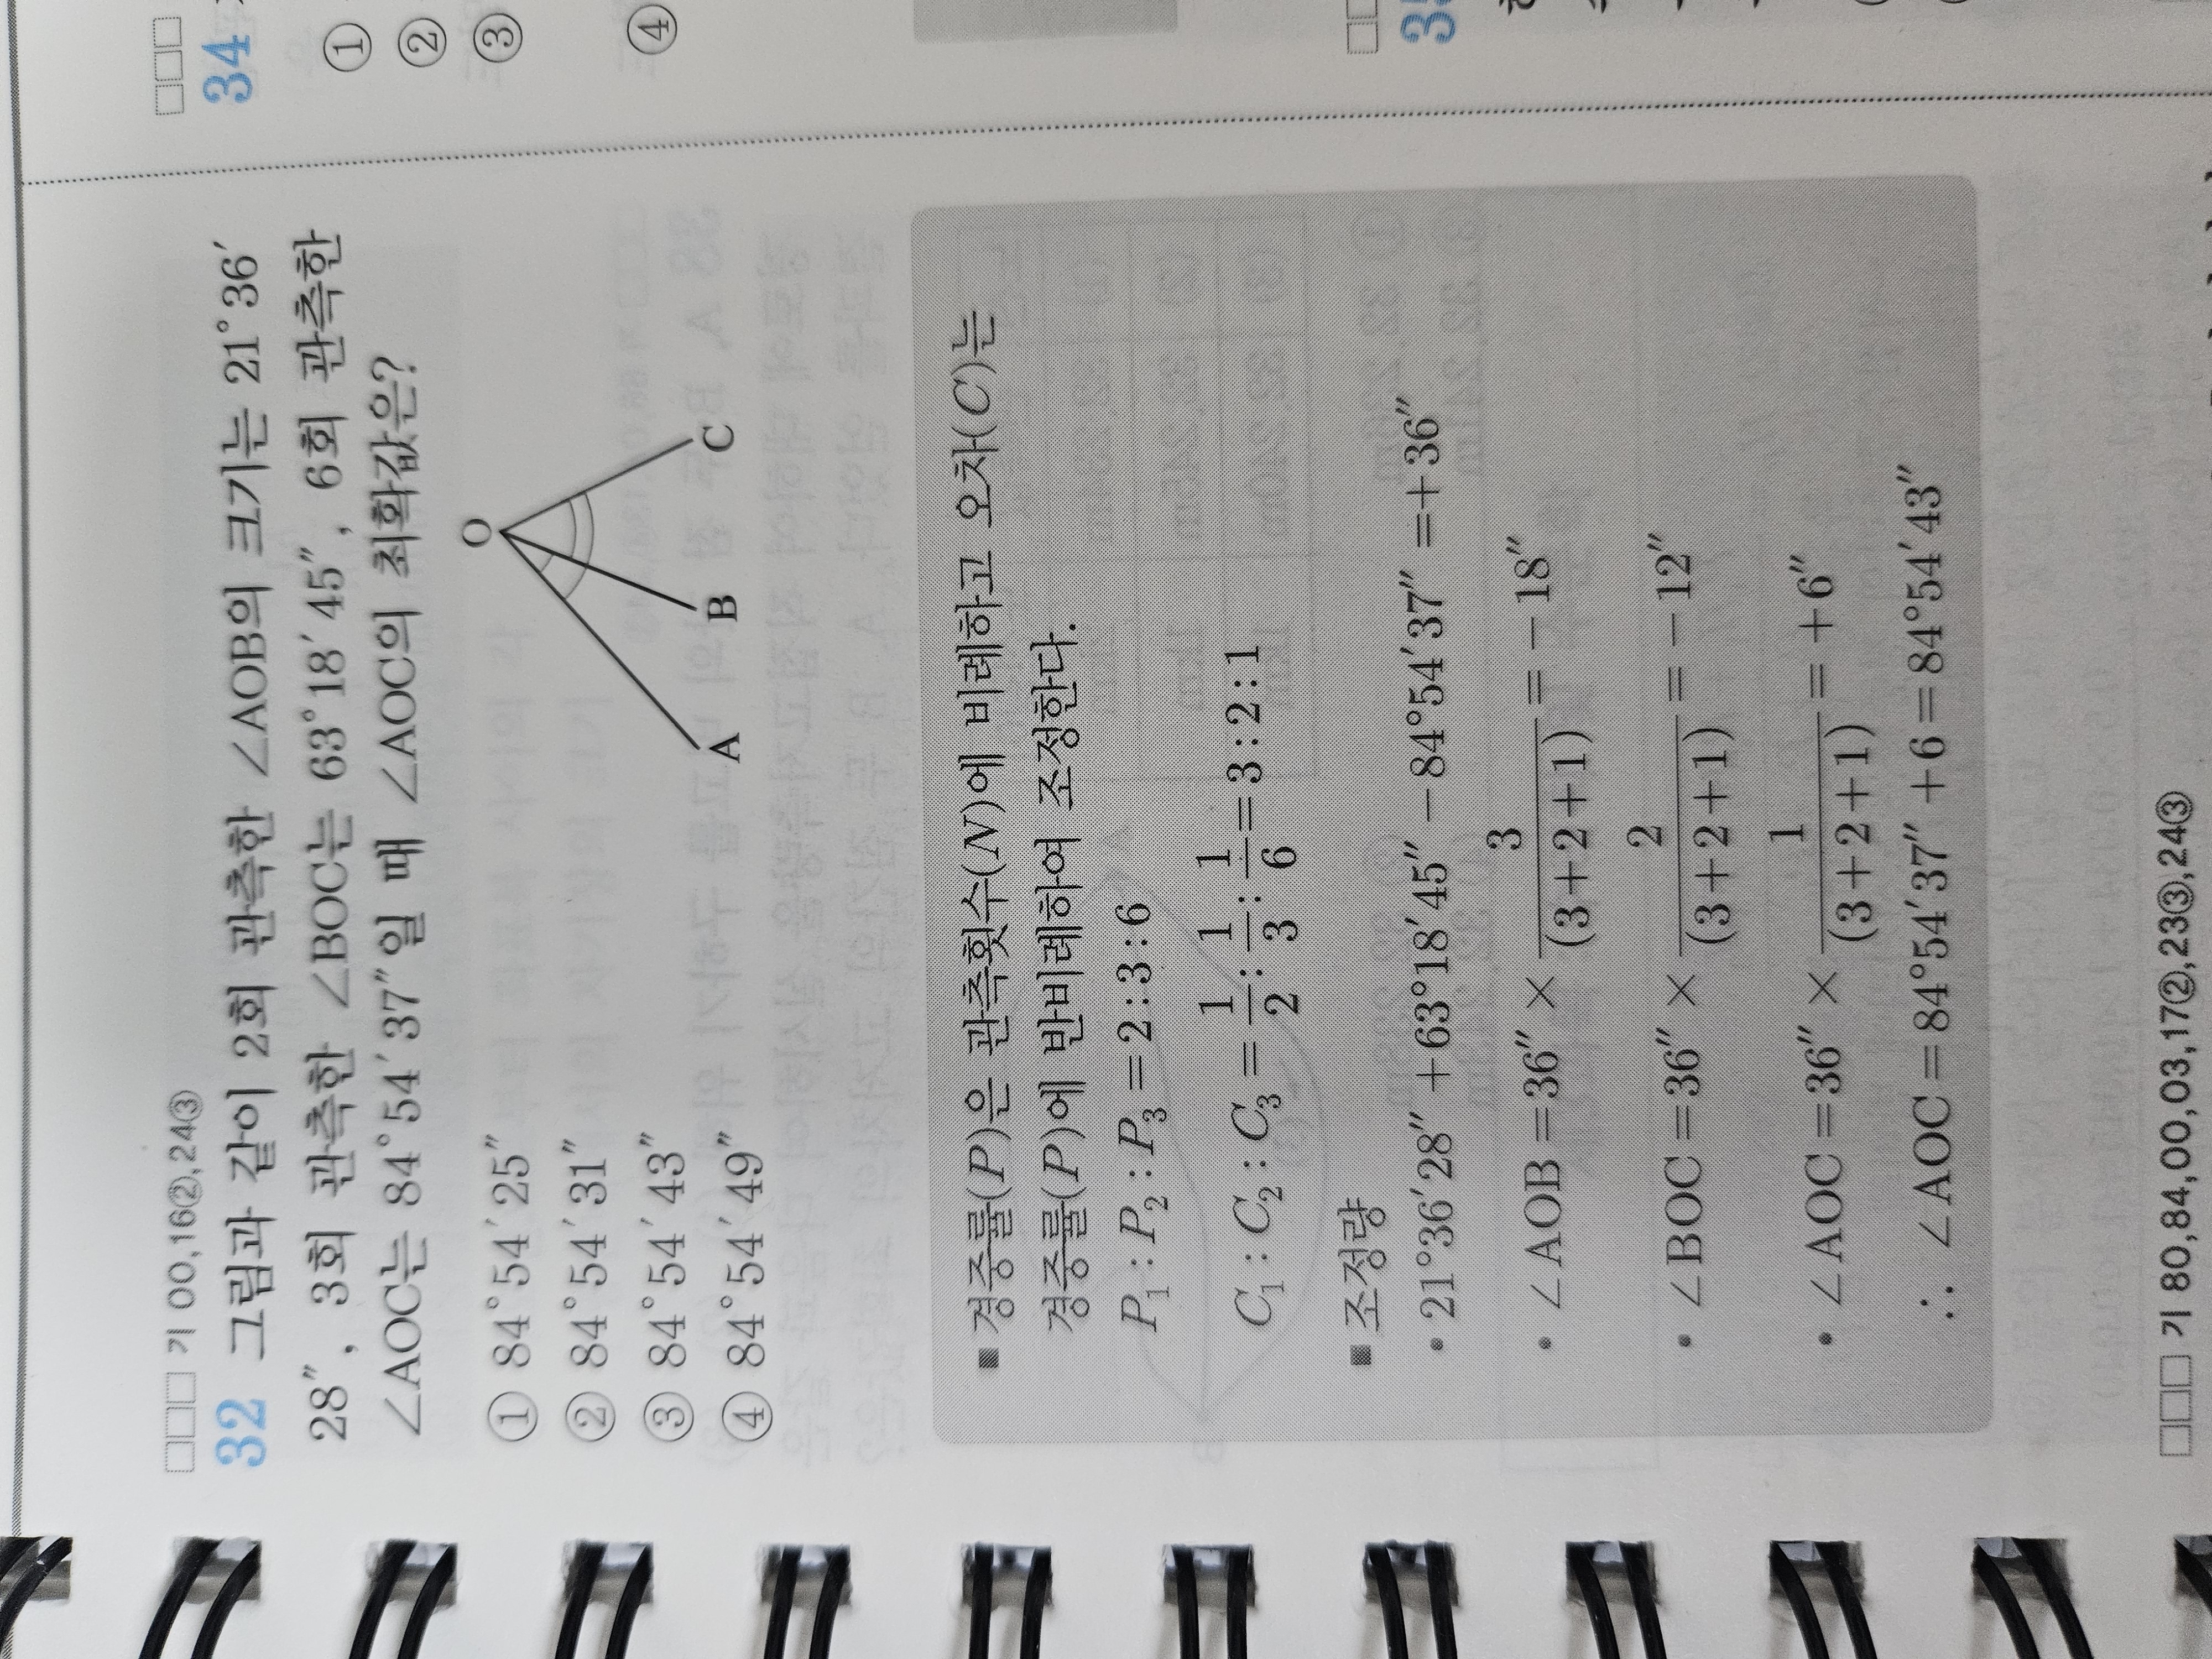 기 00,16②,24③
32 그림과 같이 2회 관측한 ∠AOB의 크기는 21°36′
28″, 3회 관측한 ∠BOC는 63°18′45″, 6회 관측한
∠AOC는 84°54′37″일 때 ∠AOC의 최확값은?
① 84°54′25″
② 84°54′31″
③ 84°54′43″
④ 84°54′49″
O
A B C
■ 경중률(P)은 관측횟수(N)에 비례하고 오차(C)는
경중률(P)에 반비례하여 조정한다.
P₁ : P₂ : P₃ = 2 : 3 : 6
C₁ : C₂ : C₃ = 1/2 : 1/3 : 1/6 = 3 : 2 : 1
■ 조정량
• 21°36′28″ + 63°18′45″ − 84°54′37″ = +36″
• ∠AOB = 36″ × 3/(3+2+1) = −18″
• ∠BOC = 36″ × 2/(3+2+1) = −12″
• ∠AOC = 36″ × 1/(3+2+1) = +6″
∴ ∠AOC = 84°54′37″ + 6 = 84°54′43″
기 80,84,00,03,17②,23③,24③
34
①
②
③
④